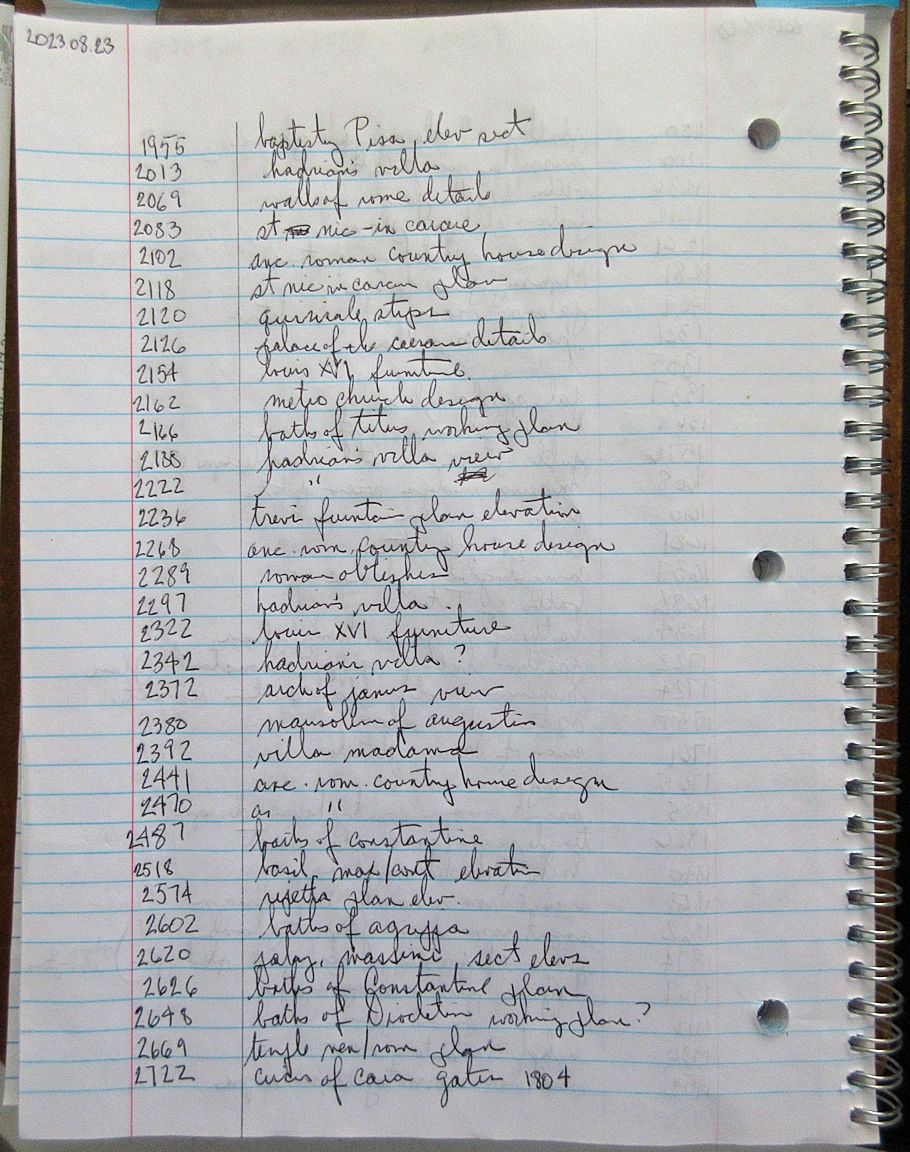 2023.08.23
1955 baptistry Pisa, elev sect
2013 hadrian's villa
2069 walls of rome details
2083 st nic-in carcere
2102 anc. roman country house design
2118 st nic in carcer plan
2120 quirinale steps
2126 palace of the caesars details
2154 louis XVI furniture
2162 metro church design
2166 baths of titus, working plan
2188 hadrian's villa view
2222 "
2236 trevi fountain plan elevation
2268 anc. rom. country house design
2289 roman
2297 hadrian's villa.
2322 louis XVI furniture
2342 hadrian's villa?
2372 arch of janus view
2380 of augustus
2392 villa madama
2441 anc. rom. country house design
2470 as "
2487 baths of constantine
2518 basil. max/const elevation
2574 plan elev.
2602 baths of agrippa
2620 massimi, sect elevs
2626 baths of Constantine plan
2648 baths of working plan?
2669 temple ven/rom plan
2722 circus of cara gates 1804